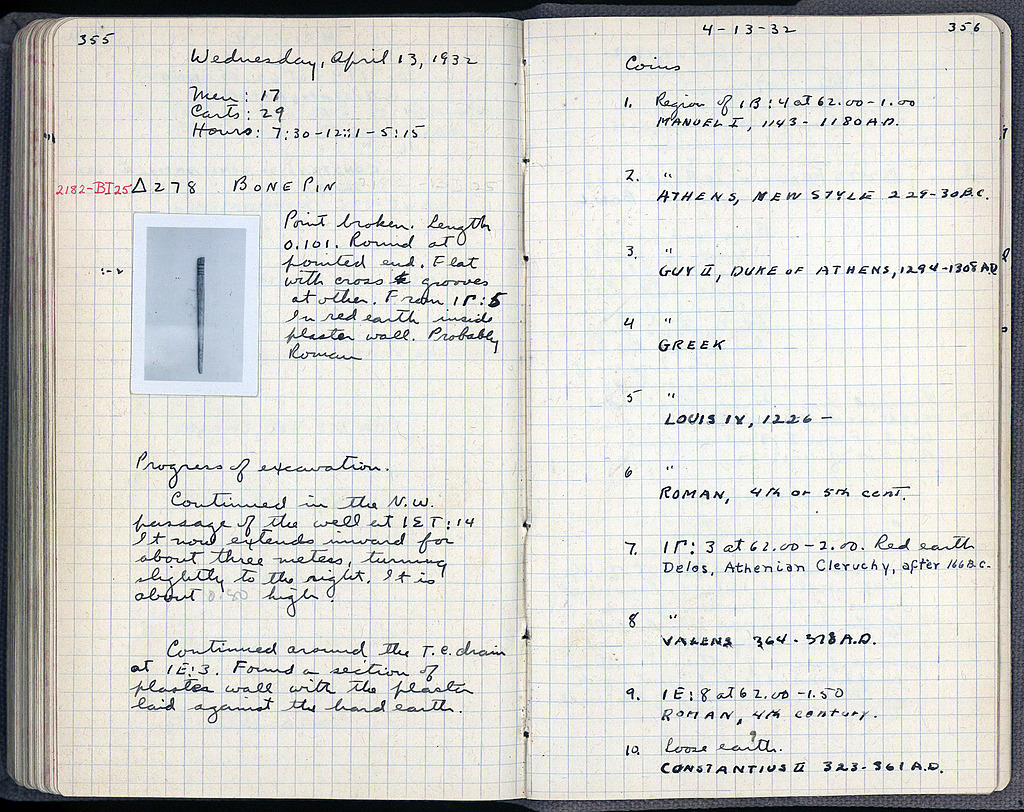 355
Wednesday, April 13, 1932
Men: 17
Carts: 29
Hours: 7:30-12::1-5:15
2182-BI25 Δ278 BONE PIN
Point broken. Length
0.101. Round at
pointed end. Flat
with cross grooves
at other. From 1Γ:5
In red earth inside
plaster wall. Probably
Roman
Progress of excavation.
Continued in the N.W.
passage of the well at 1ΣT:14
It now extends inward for
about three meters, turning
slightly to the right. It is
about 0.80 high.
Continued around the T.C. drain
at 1E:3. Found a section of
plaster wall with the plaster
laid against the hard earth.
4-13-32 356
Coins
1. Region of 1B:4 at 62.00-1.00
MANUEL I, 1143-1180 A.D.
2. "
ATHENS, NEW STYLE 229-30 B.C.
3. "
GUY II, DUKE OF ATHENS, 1294-1308 A.D
4 "
GREEK
5 "
LOUIS IX, 1226 -
6 "
ROMAN, 4th or 5th cent.
7. 1Γ: 3 at 62.00-2.00. Red earth
Delos, Athenian Cleruchy, after 166 B.C.
8 "
VALENS 364-378 A.D.
9. 1E:8 at 62.00-1.50
ROMAN, 4th century.
10. loose earth. ?
CONSTANTIUS II 323-361 A.D.